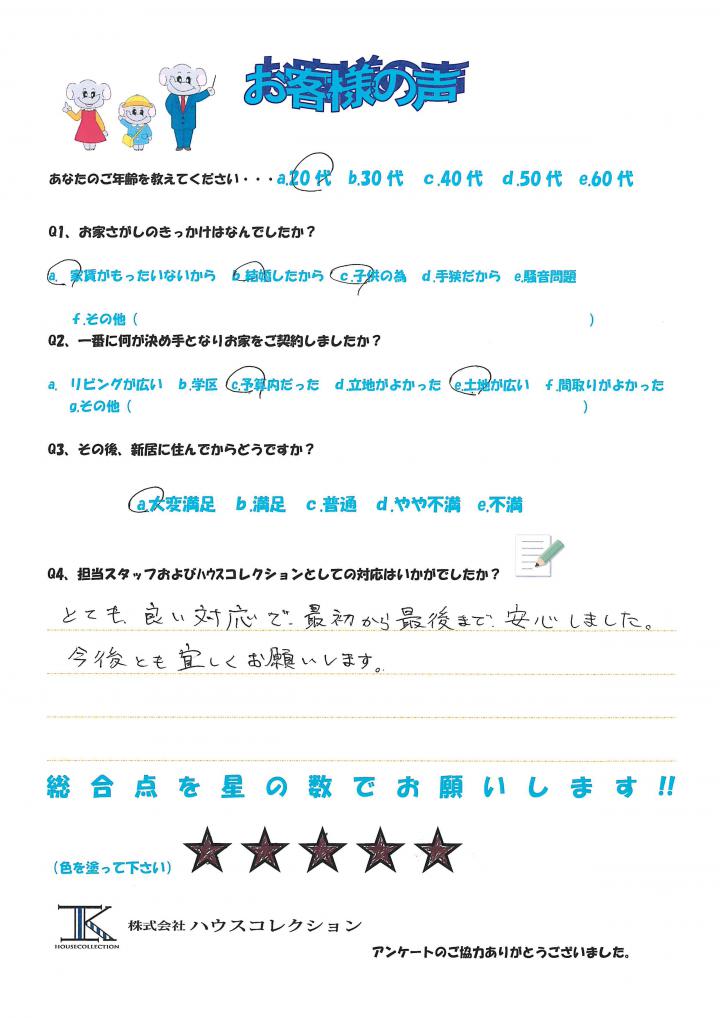 お客様の声
あなたのご年齢を教えてください・・・a.20代 b.30代 c.40代 d.50代 e.60代
Q1、お家さがしのきっかけはなんでしたか？
a. 家賃がもったいないから b.結婚したから c.子供の為 d.手狭だから e.騒音問題
f.その他（ ）
Q2、一番に何が決め手となりお家をご契約しましたか？
a. リビングが広い b.学区 c.予算内だった d.立地がよかった e.土地が広い f.間取りがよかった
g.その他（ ）
Q3、その後、新居に住んでからどうですか？
a.大変満足 b.満足 c.普通 d.やや不満 e.不満
Q4、担当スタッフおよびハウスコレクションとしての対応はいかがでしたか？
とても、良い対応で、最初から最後まで、安心しました。
今後とも宜しくお願いします。
総合点を星の数でお願いします!!
（色を塗って下さい）
HOUSECOLLECTION
株式会社 ハウスコレクション
アンケートのご協力ありがとうございました。